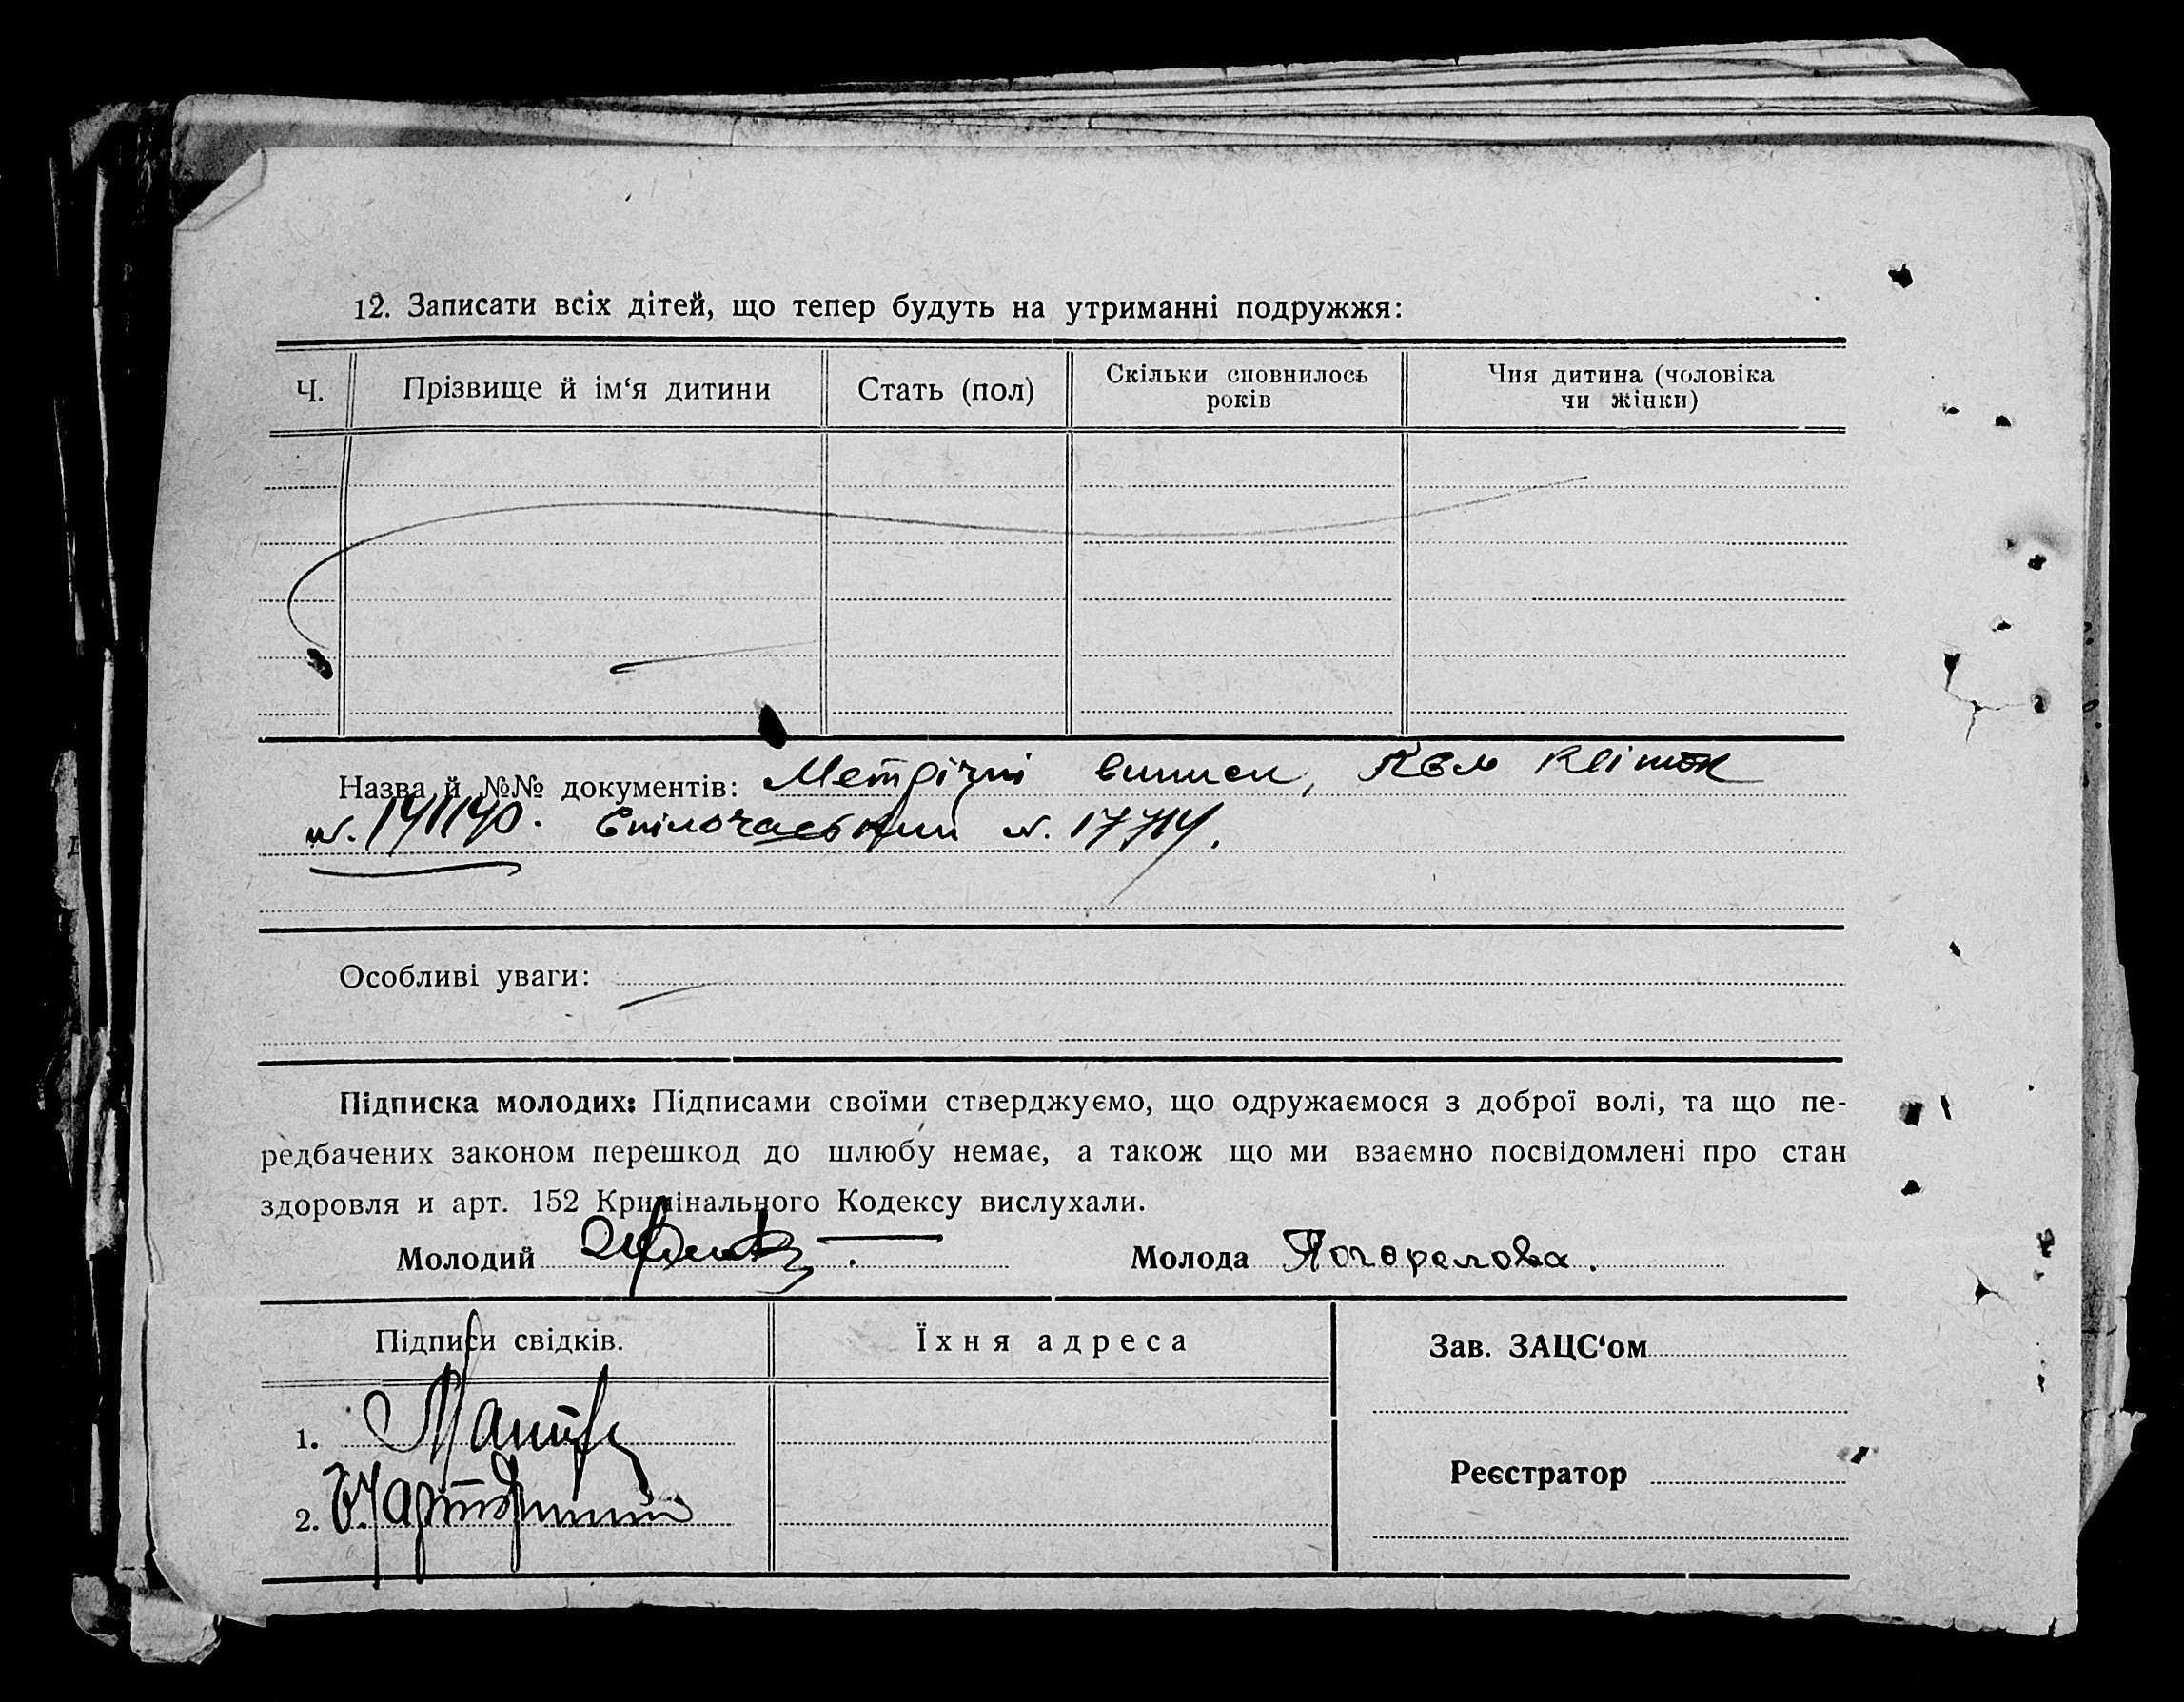 12. Записати всіх дітей, що тепер будуть на утриманні подружжя:
Ч.
Прізвище й ім‘я дитини
Стать (пол)
Скільки сповнилось
років
Чия дитина (чоловіка
чи жінки)
Назва й №№ документів: Метрічні виписи,
Особливі уваги:
Підписка молодих: Підписами своїми стверджуємо, що одружаємося з доброї волі, та що пе-
редбачених законом перешкод до шлюбу немає, а також що ми взаємно посвідомлені про стан
здоровля и арт. 152 Кримінального Кодексу вислухали.
Молодий
Молода Погорелова.
Підписи свідків.
Їхня адреса
Зав. ЗАЦС‘ом
1.
Реєстратор
2.